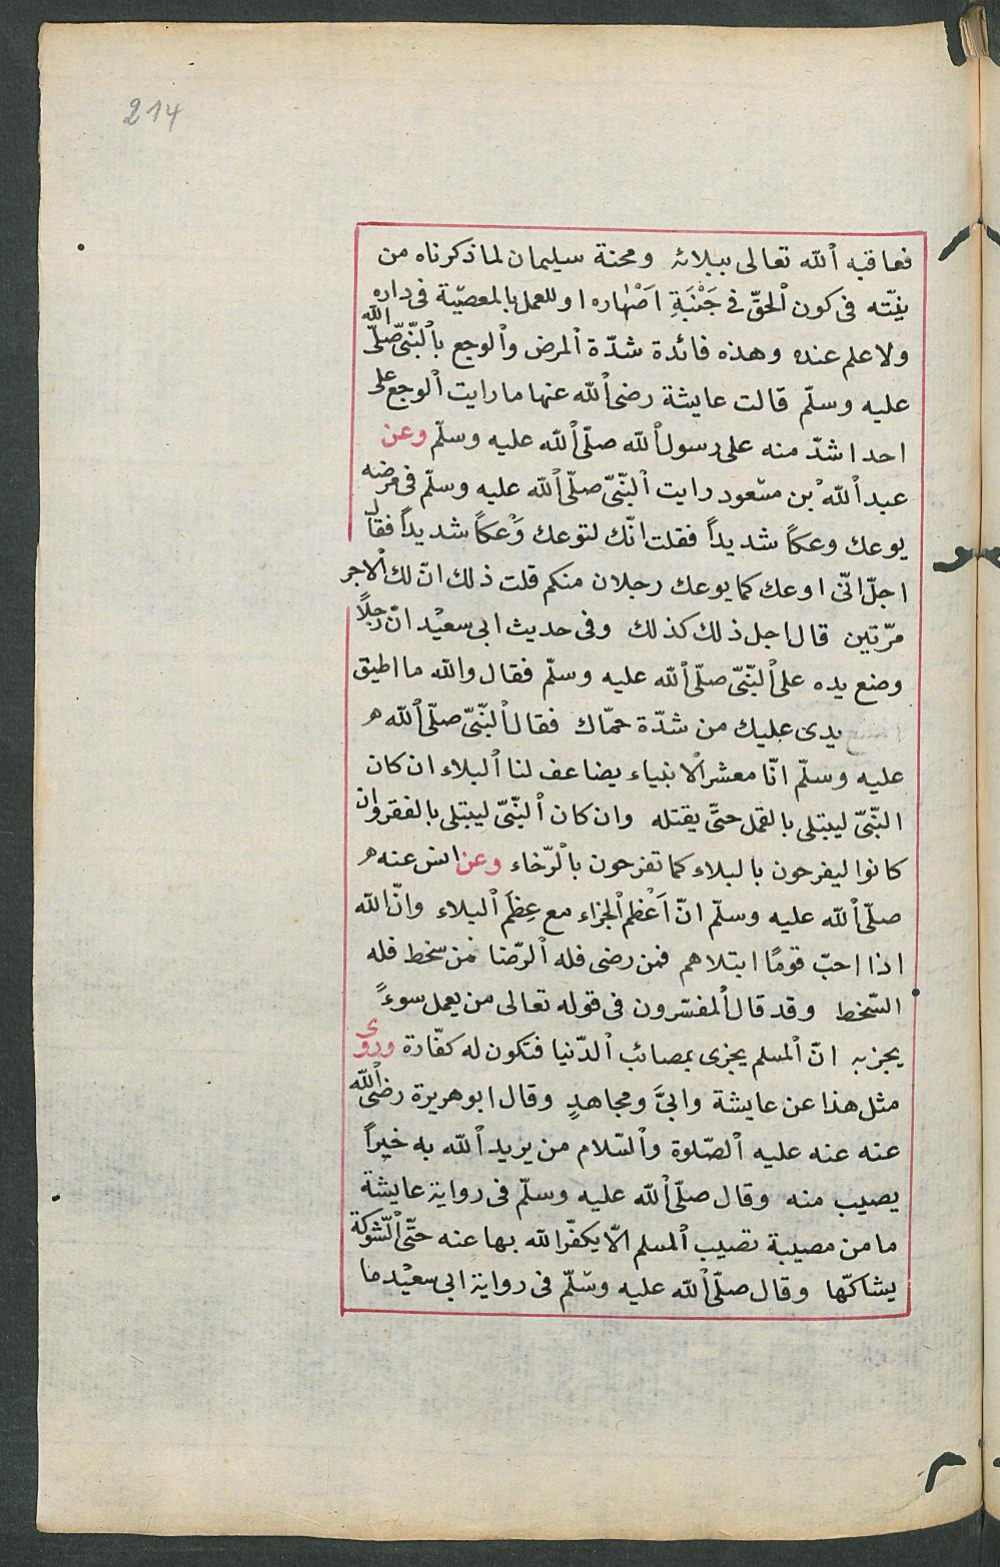 214
فعاقبه ٱلله تعالى ببلائه ومحنة سليمان لما ذكرناه من
نيّته فى كون ٱلحقّ فى جَنْبَةِ اَصْهاره او للعمل بالمعصيّة فى داره
ولا علم عنده وهذه فائدة شدّة ٱلمرض وٱلوجع بٱلنّبىّ صلّى الله
عليه وسلّم قالت عايشة رضى ٱلله عنها ما رايت ٱلوجع على
احد اشدّ منه على رسول ٱلله صلّى ٱلله عليه وسلّم وعن
عبد ٱلله بن مسعود رايت ٱلنّبىّ صلّى ٱلله عليه وسلّم فى مرضه
يوعك وعكاً شديداً فقلت انّك لتوعك وَعكاً شديداً فقال
اجلّ انّى اوعك كما يوعك رجلان منكم قلت ذلك انّ لك ٱلاجر
مرّتين قال اجل ذلك كذلك وفى حديث ابى سعيْد انّ رجلًا
وضع يده على ٱلنّبىّ صلّى ٱلله عليه وسلّم فقال والله ما اطيق
يدى عليك من شدّة حمّاك فقال ٱلنّبىّ صلّى ٱلله ه
عليه وسلّم انّا معشر ٱلانبياء يضاعف لنا ٱلبلاء ان كان
النّبىّ ليبتلى بالقمل حتّى يقتله وان كان ٱلنّبىّ ليبتلى بالفقر وان
كانوا ليفرحون بالبلاء كما تفرحون بٱلرّخاء وعن انس عنه ه
صلّى ٱلله عليه وسلّم انّ اَعْظم ٱلجزاء مع عِظَم ٱلبلاء وانّ الله
اذا احبّ قومًا ابتلاهم فمن رضى فله ٱلرّضا فمن سخط فله
السّخط وقد قال ٱلمفسّرون فى قوله تعالى من يعمل سوءً
يجز به انّ ٱلمسلم يجزى بمصائب ٱلدّنيا فتكون له كفّارة وروى
مثل هذا عن عايشة وابىّ ومجاهدٍ وقال ابو هريرة رضى ٱلله
عنه عنه عليه ٱلصّلوة وٱلسّلام من يريد ٱلله به خيراً
يصيب منه وقال صلّى ٱلله عليه وسلّم فى رواية عايشة
ما من مصيبة تصيب ٱلمسلم الّا يكفّر الله بها عنه حتّى ٱلشّوكة
يشاكّها وقال صلّى ٱلله عليه وسّلّم فى رواية ابى سعيْد ما